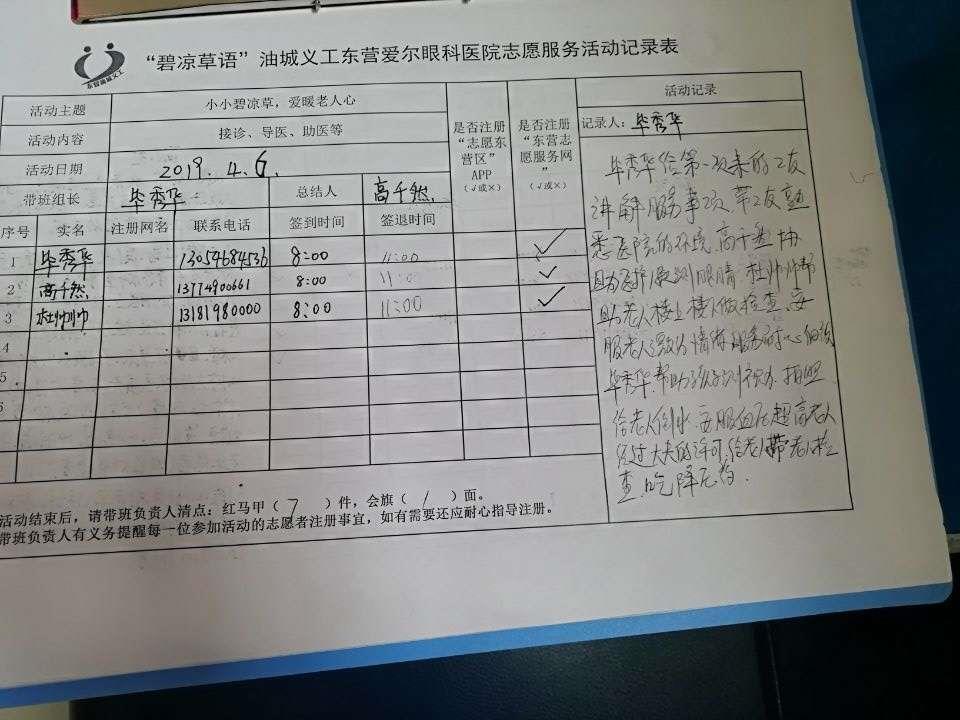 东营油城义工
“碧凉草语”油城义工东营爱尔眼科医院志愿服务活动记录表
活动主题 小小碧凉草，爱暖老人心
活动内容 接诊、导医、助医等
活动日期 2019.4.6.
带班组长 毕秀华 总结人 高千然
是否注册“志愿东营区”APP（√或×）
是否注册“东营志愿服务网”（√或×）
序号 实名 注册网名 联系电话 签到时间 签退时间
1 毕秀华 13054684536 8:00 11:00 ✓
2 高千然 13774900661 8:00 11:00 ✓
3 杜帅帅 13181980000 8:00 11:00 ✓
4
5
6
活动结束后，请带班负责人清点：红马甲（7）件，会旗（1）面。
带班负责人有义务提醒每一位参加活动的志愿者注册事宜，如有需要还应耐心指导注册。
活动记录
记录人：毕秀华
毕秀华给第一次来的义友
讲解服务事项 带义友熟
悉医院的环境 高千然协
助医护 测眼睛 杜帅帅帮
助老人楼上楼下做检查 安
服老人激动情绪 服务耐心细致
毕秀华帮助孩子测视力 拍照
给老人倒水 安服血压超高老人
经过大夫的许可 给老人带老人检
查 吃降压药.